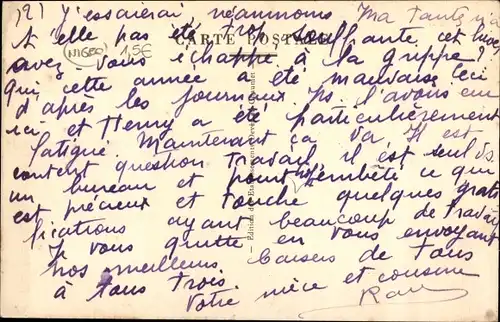 (2) J'essaierai néanmoins Ma Tante
NIGEO 1,5€ CARTE POSTALE
n'elle pas été trop souffrante cet hiver
avez-vous échappé à la grippe ?
qui cette année a été mauvaise ici
d'après les journaux. Ns l'avons eue
ici et Henry a été particulièrement
fatigué Maintenant ça va. Il est
content question Travail, il est seul ds
un bureau et point embêté ce qui
est précieux et touche quelques grati
fications ayant beaucoup de travail
Je vous quitte en vous envoyant
nos meilleurs baisers de tous
à tous trois.
Votre nièce et cousine